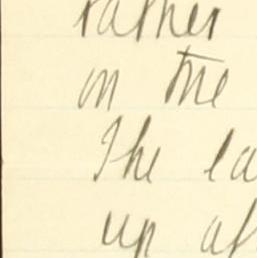 rather
on the
The la
up af